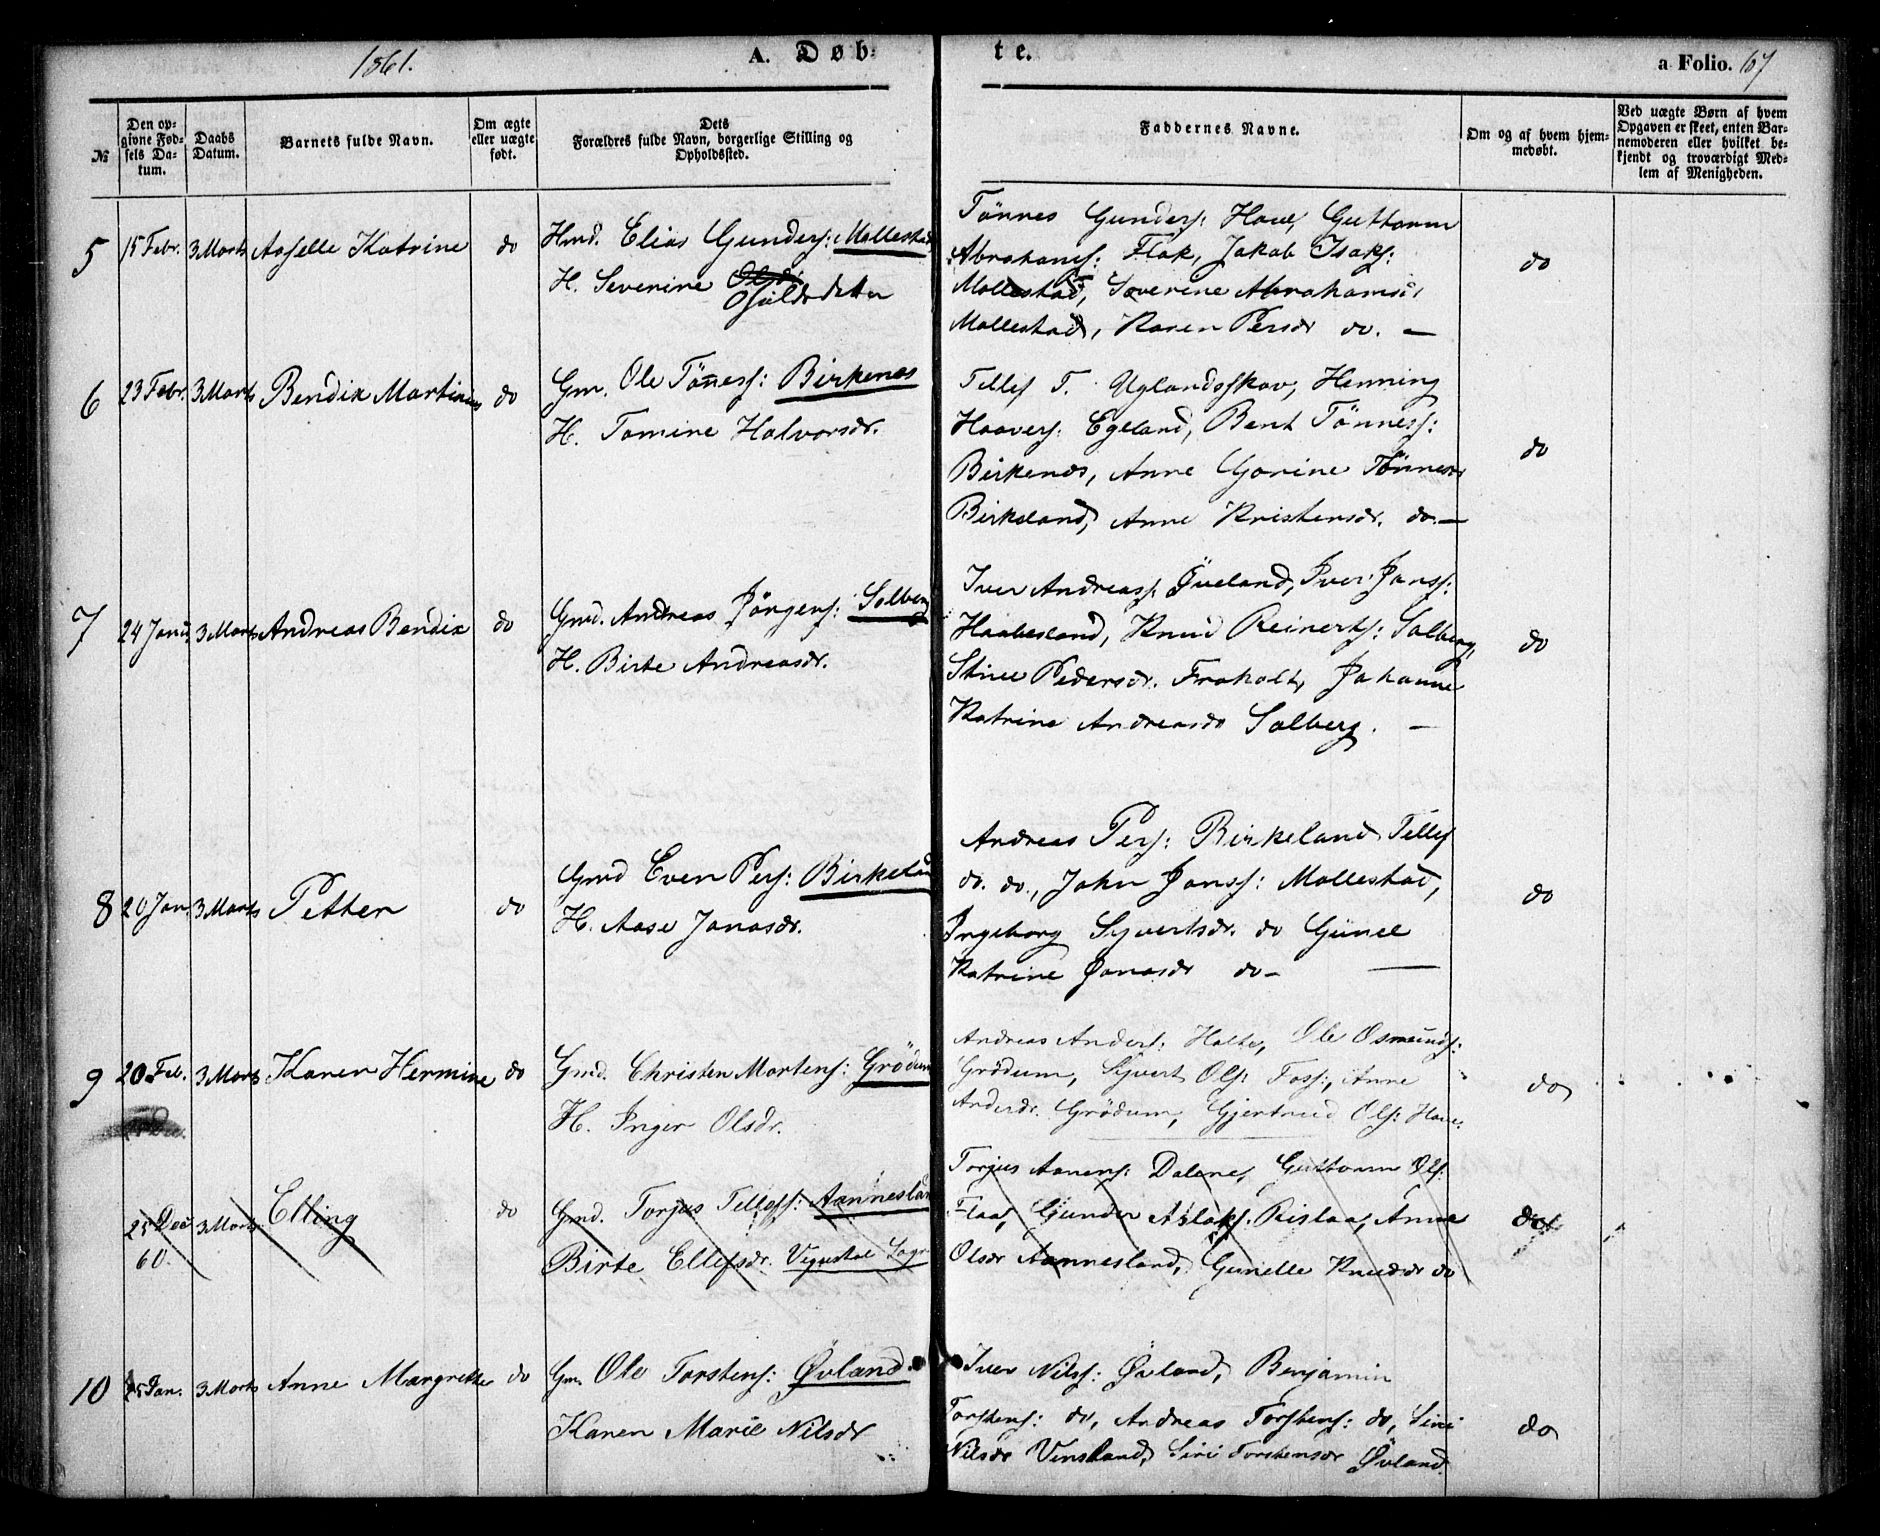 1861.
A. Døb-
te.
a Folio. 67
№
Den op-
givne Fød-
sels Da-
tum.
Daabs
Datum.
Barnets fulde Navn.
Om ægte
eller uægte
født.
Dets
Forældres fulde Navn, borgerlige Stilling og
Opholdssted.
Faddernes Navne.
Om og af hvem hjem-
medøbt.
Ved uægte Børn af hvem
Opgaven er skeet, enten Bar-
nemoderen eller hvilket be-
kjendt og troværdigt Med-
lem af Menigheden.
5 15 Febr. 3 Marts Aaselle Katrine do
Hmd. Elias Gunders: Mollestad
H. Severine Osulds datter
Tønnes Gunders: Haue, Guttorm
Abrahams: Flak, Jakob Isaks:
Mollestad, Severine Abrahamsdr
Mollestad, Karen Persdr do. —
do
6 23 Febr. 3 Marts Bendix Martinius do
Gm. Ole Tønness: Birkenes
H. Tomine Halvorsdr.
Tellef T. Uglandsskov, Henning
Haavers: Egeland, Bent Tønness:
Birkenes, Anne Gorine Tønnesdr
Birkeland, Anne Kristensdr. do. —
do
7 24 Janu. 3 Marts Andreas Bendix do
Gmd. Andreas Jørgens: Solberg
H. Birte Andreasdr.
Iver Andreass: Øveland, Iver Janss:
Haabesland, Knud Reinerts: Solberg,
Stine Pedersdr. Froholt, Johanne
Katrine Andreasdr Solberg. —
do
8 20 Jan. 3 Marts Petter do
Gmd Even Pers: Birkeland
H. Aase Jonasdr.
Andreas Pers: Birkeland Tellef
do. do., John Janss: Mollestad,
Ingeborg Syvertsdr. do Gunel
Katrine Jonasdr do — —
do
9 20 Feb. 3 Marts Karen Hermine do
Gmd. Christen Mortens: Grödum
H. Inger Olsdr.
Andreas Anders: Holte, Ole Osmunds:
Grödum, Syvert Ols: Foss:, Anne
Andersdr. Grödum, Gjertrud Ols: Haue.
do
25 Dec 3 Marts Elling do
60.
Gmd. Torjus Tellefs: Aanesland
Birte Ellefsdr. Vegusdal Sogn
Torjus Aanens: Dalene, Guttorm Ols:
Flaa, Gunder Aslaks. Rislaa, Anne
Olsdr Aannesland, Gunelle Knudsdr do
do
10 25 Jan. 3 Marts Anne Margrethe do
Gm. Ole Torstens: Øvland.
Karen Marie Nilsdr
Iver Nilss: Øvland, Benjamin
Torstens: do, Andreas Torstens: do, Siri
Nilsdr Vensland, Siri Torstensdr Øvland.
do